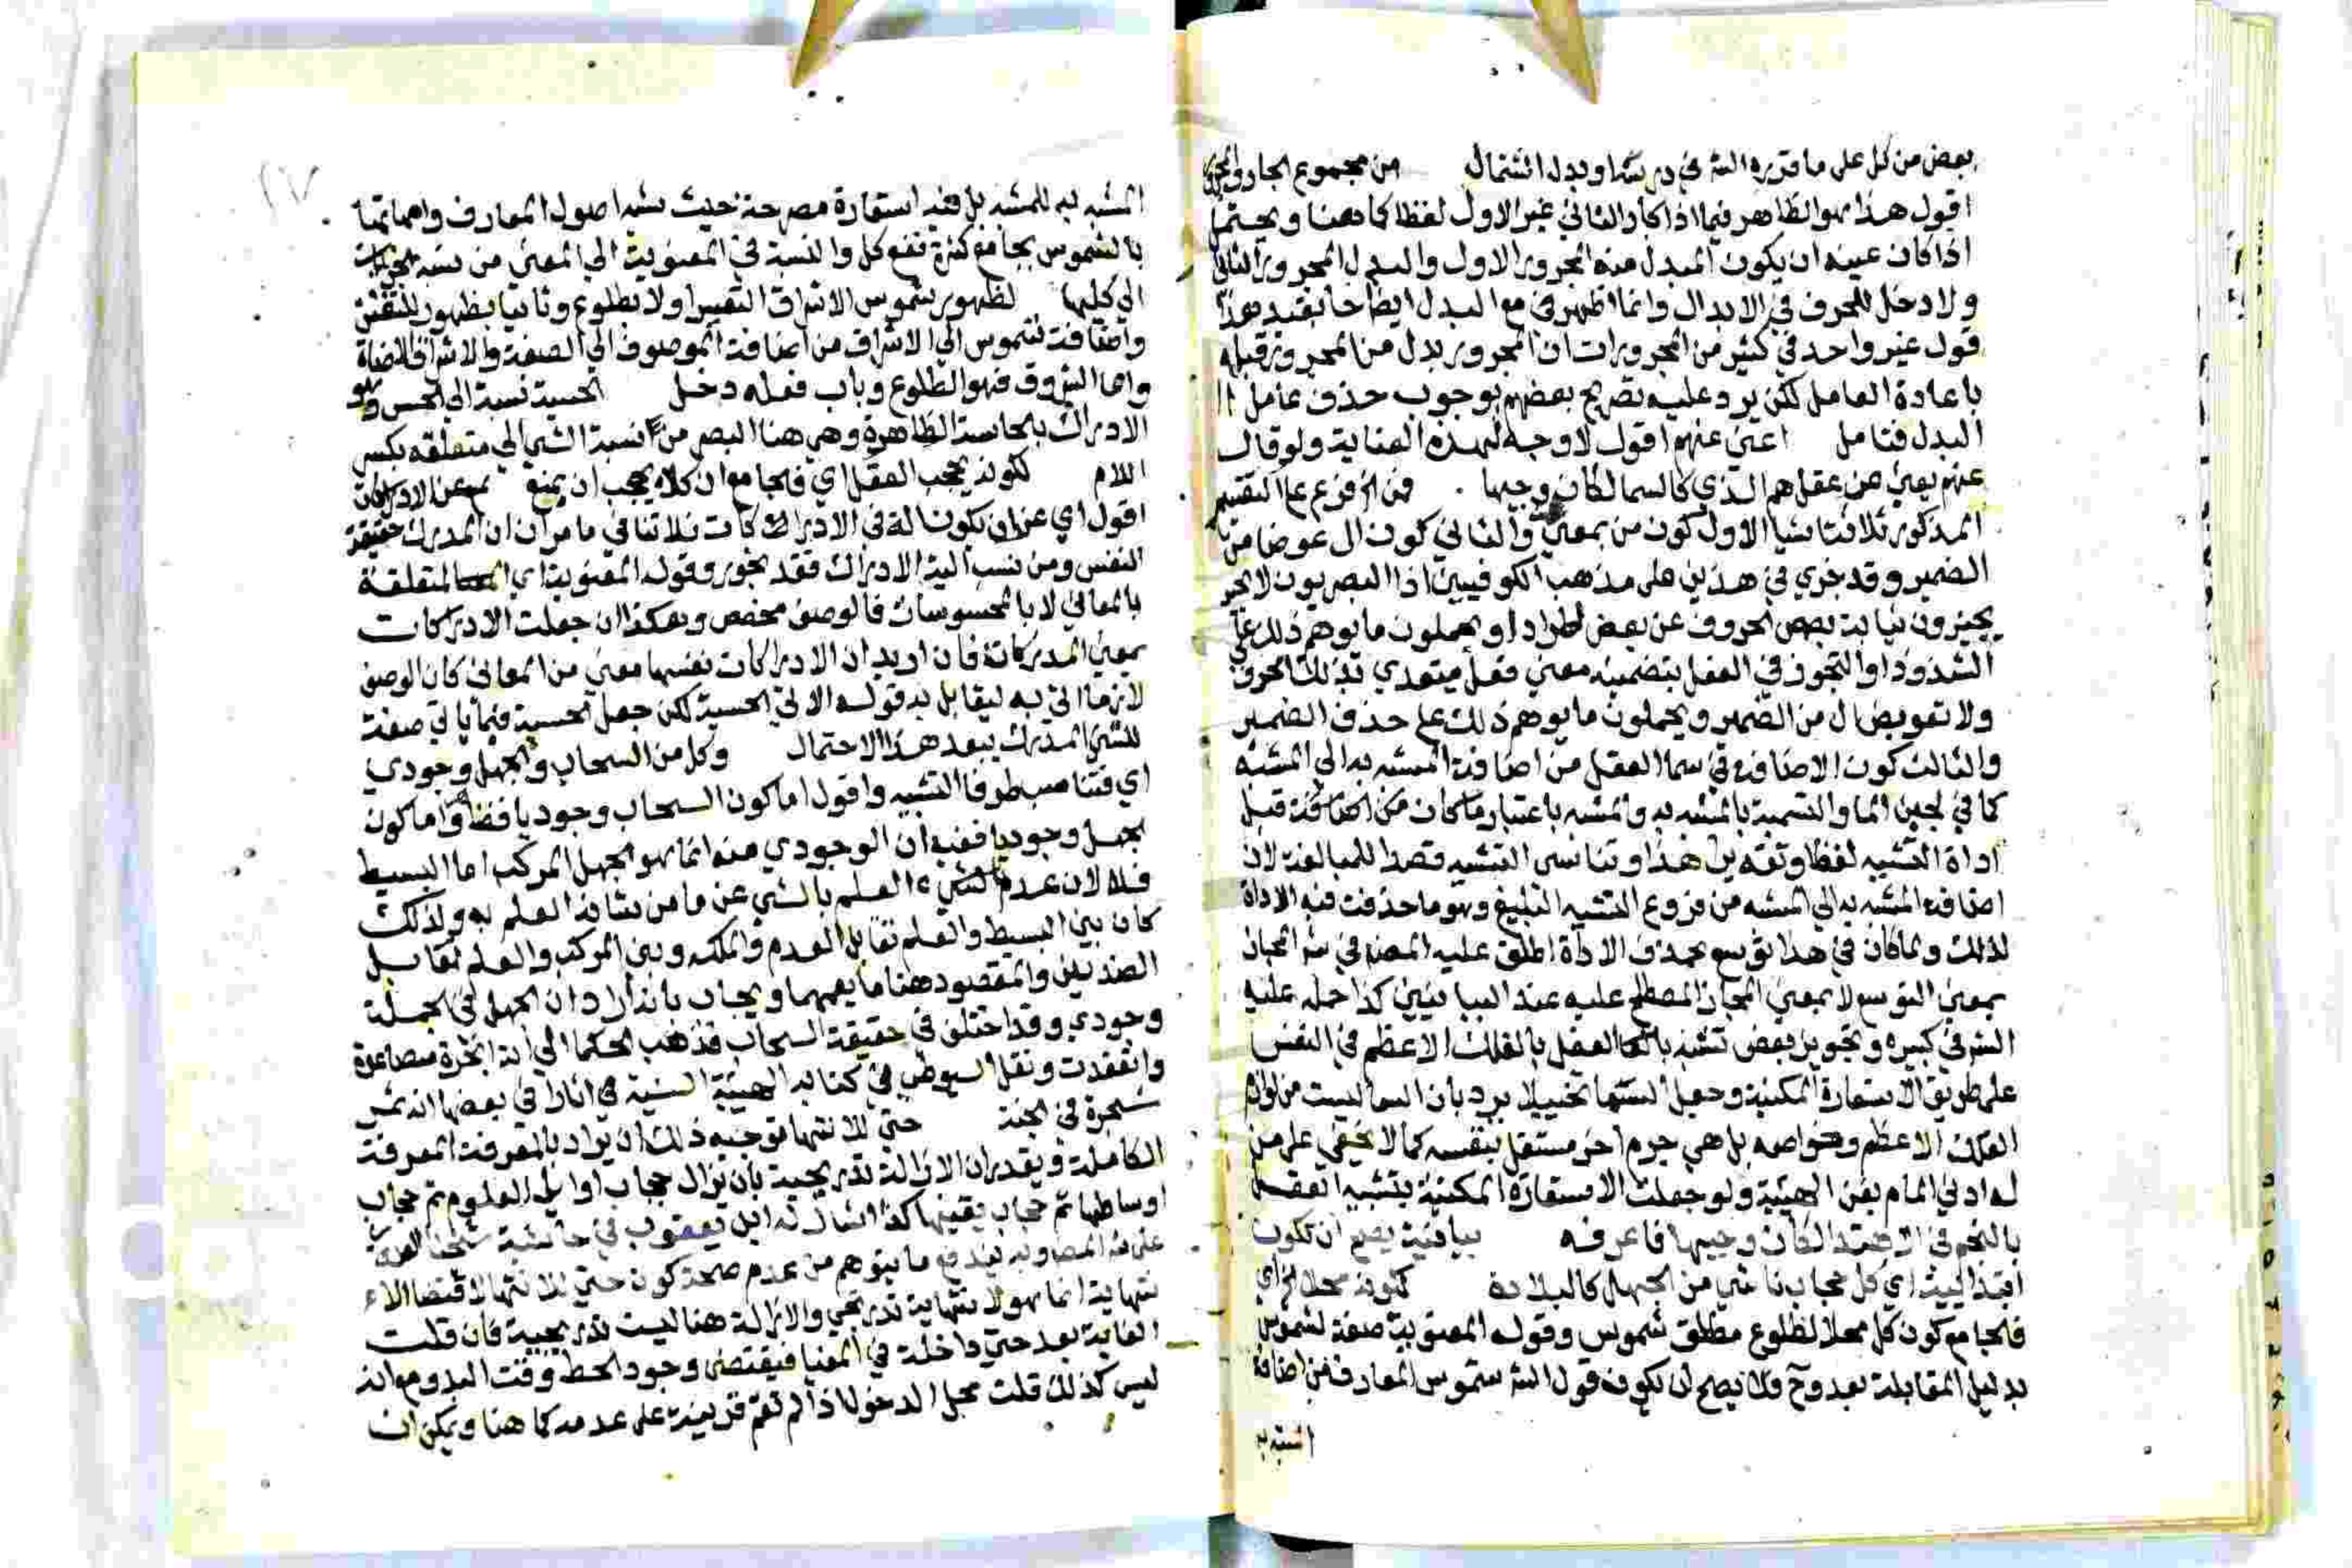 بعض من كل على ما قرره الشر في درسه او بدل اشتمال من مجموع الجار والمجرور
اقول هذا هو الظاهر فيما اذا كان الثاني غير الاول لفظا كما هنا ويحتمل
اذا كان عينه ان يكون المبدل منه المجرور الاول والبدل المجرور الثاني
ولا دخل للحرف في الابدال وانما اظهر في مع البدل ايضاحا يفيد هذا
قول غير واحد في كثير من المجرورات ان المجرور بدل من المجرور قبله
باعادة العامل لكن يرد عليه تصريح بعضهم بوجوب حذف عامل
البدل فتامل اعني عنهم اقول لا وجه لهذه العناية ولو قال
عنهم يعني عن عقلهم الذي كالسما لكان وجيها . فمن الخ فرع على التقسيم
المذكور ثلاثة اشيا الاول كون من بمعنى والثاني كون ال عوضا من
الضمير وقد جري في هذين على مذهب الكوفيين اذ البصريون لا
يجيزون نيابة بعض الحروف عن بعض اطرادا ويحملون ما يوهم ذلك على
الشذوذ او التجوز في الفعل بتضمينه معنى فعل يتعدي بذلك الحرف
ولا تعويض ال من الضمير ويحملون ما يوهم ذلك على حذف الضمير
والثالث كون الاضافة في سما العقل من اضافة المشبه به الي المشبه
كما في لجين الما والتسمية بالمشبه به والمشبه باعتبار ما كان من اضافة قبل
اداة التشبيه لفظا وتقديرا هذا وتناسى التشبيه قصدا للمبالغة لان
اضافة المشبه به الي المشبه من فروع التشبيه البليغ وهو ما حذفت فيه الاداة
لذلك ولما كان في هذا توسع بحذف الاداة اطلق عليه المص في شر المجاز
بمعنى التوسع لا بمعنى المجاز المصطلح عليه عند البيانيين كذا حمله عليه
الشر في كبيره وتجويز بعض تشبيه العقل بالفلك الاعظم في النفس
على طريق الاستعارة المكنية وجعل السما تخييلا يرد بان السما ليست من لوازم
الفلك الاعظم وخواصه بل هي جرم اخر مستقل بنفسه كما لا يخفي على من
له ادني المام بفن الهيئة ولو جعلت الاستعارة المكنية بتشبيه العقل
بالنجم في الاهتدا لكان وجيها فاعرفه بيانية يصح ان تكون
ابتدائية اي كل حجاب ناشي من الجهل كالبلادة لكونه محلا الخ اي
فالجامع كون كل محلا لطلوع مطلق شموس وقوله المعنوية صفة لشموس
بدليل المقابلة بعد وح فلا يصح ان يكون قول الشر شموس المعارف من اضافة
المشبه به
المشبه به للمشبه بل فيه استعارة مصرحة حيث شبه اصول المعارف وامهاتها
بالشموس بجامع كثرة نفع كل والنسبة في المعنوية الي المعنى من نسبة الجزئيات
الي كليها لظهور شموس الاشراق التعبير اولا بطلوع وثانيا بظهور للتفنن
واضافة شموس الي الاشراق من اضافة الموصوف الي الصفة والاشراق الاضاة
واما الشروق فهو الطلوع وباب فعله دخل الحسية نسبة الي الحس وهو
الادراك بالحاسة الظاهرة وهي هنا البصر من نسبة الشي الي متعلقه بكسر
اللام لكونه يحجب العقل اي فالجامع ان كلا يحجب ان يمنع عن الادراكات
اقول اي عن ان يكون الة في الادراكات فلا تنافي ما مر ان المدرك حقيقة
النفس ومن نسب اليه الادراك فقد تجوز وقوله المعنوية اي المتعلقة
بالمعاني لا بالمحسوسات فالوصف مخصص وهكذا ان جعلت الادراكات
بمعنى المدركات فان اريد ان الادراكات نفسها معنى من المعاني كان الوصف
لازما اتي به ليقابل به قوله الاتي الحسية لكن جعل الحسية فيما ياتي صفة
للشي المدرك يبعد هذا الاحتمال وكل من السحاب والجهل وجودي
اي فتناسب طرفا التشبيه واقول اما كون السحاب وجوديا فظ واما كون
الجهل وجوديا ففيه ان الوجودي منه انما هو الجهل المركب اما البسيط
فلا لانه عدم العلم بالشي عن ما من شانه العلم به ولذلك
كان بين البسيط والعلم تقابل العدم والملكه وبين المركب والعلم تقابل
الضدين والمقصود هنا ما يعمهما ويجاب بانه اراد ان الجهل في الجملة
وجودي وقد اختلف في حقيقة السحاب فذهب الحكما الي انه ابخرة متصاعدة
وانعقدت ونقل السيوطي في كتابه الهيئة السنية في اثارا في بعضها انه ثمر
شجرة في الجنة حتى للانتها توجيه ذلك ان يراد بالمعرفة المعرفة
الكاملة ويقدر ان الازالة تدريجية بان يزال حجاب اوايل العلوم ثم حجاب
اوساطها ثم حجاب يقينها كذا اشار له ابن يعقوب في حاشية
على شر المص وبه يندفع ما يتوهم من عدم صحة كون حتى للانتها لاقتضا الا
نتهاية انما هو لانتهاية تدريجي والازالة هنا ليست تدريجية فان قلت
الغاية بعد حتى داخلة في المغيا فيقتضى وجود الحط وقت البدو مع انه
ليس كذلك قلت محل الدخول اذا لم تقم قرينة على عدمه كما هنا ويمكن ان